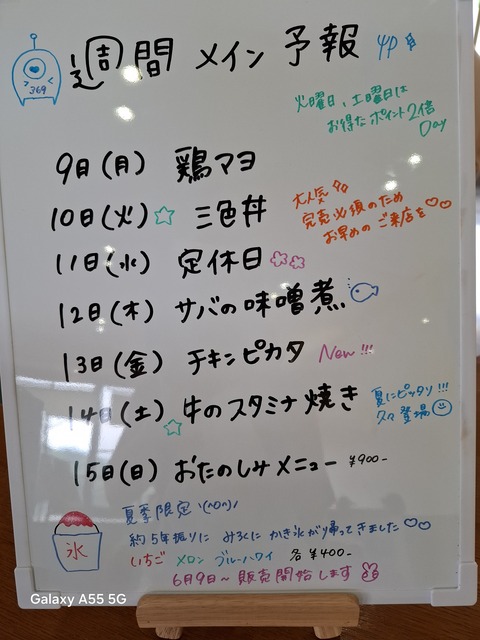 369
週間 メイン 予報
火曜日、土曜日は
お得なポイント2倍
Day
9日(月) 鶏マヨ
10日(火)☆ 三色丼
大人気
完売必須のため
お早めのご来店を♡♡
11日(水) 定休日
12日(木) サバの味噌煮
13日(金) チキンピカタ New!!!
14日(土)☆ 牛のスタミナ焼き
夏にピッタリ!!!
久々登場
15日(日) おたのしみメニュー ¥900-
夏季限定 \(^o^)/
約5年振りに みろくに かき氷が帰ってきました♡♡
氷
いちご メロン ブルーハワイ 各¥400-
6月9日~販売開始します
Galaxy A55 5G